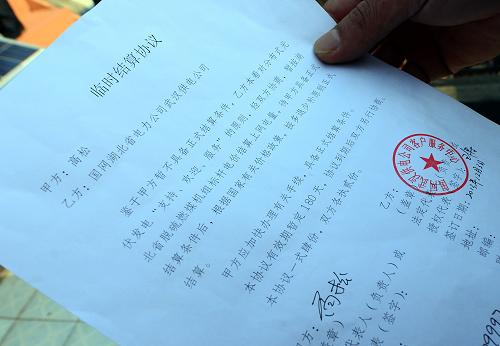 临时结算协议
甲方：高松
乙方：国网湖北省电力公司武汉供电公司
鉴于甲方暂无具备正式结算条件，乙方本着对分布式光
伏发电“支持、欢迎、服务”的原则，
北省脱硫燃煤机组标杆电价结算上网电量。待甲方具备正式
结算条件后，根据国家有关价格政策，按多退少补原则正式
结算。
甲方应加快办理有关手续，具备正式结算条件。
本协议有效期暂定180天，协议到期后双方另行协商。
本协议一式肆份，双方各执贰份。
甲方：高松
代表人（负责人）或
（签字）：
乙方：
法定代
授权代
签订日期：
地址：
邮编：